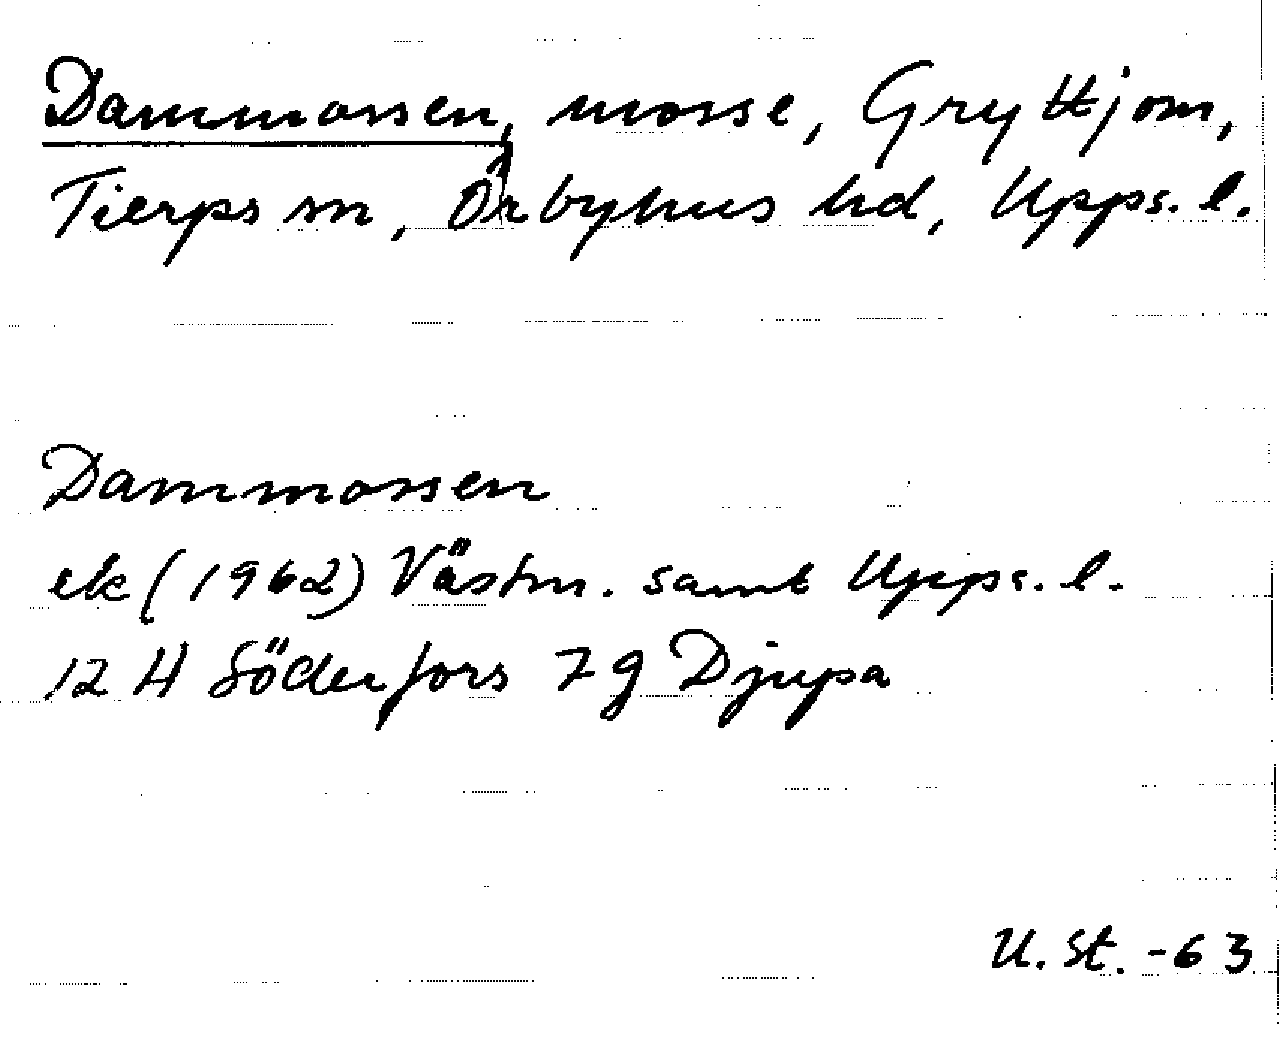 Dammossen, mosse, Gryttjom,
Tierps sn, Örbyhus hd, Upps. l.
Dammossen
ek (1962) Västm. samt Upps. l.
12 H Söderfors 7 g Djupa
U. St. -63